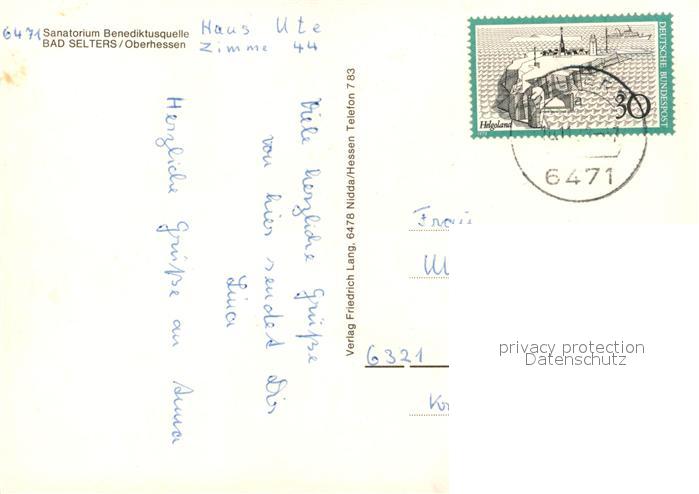 6471 Sanatorium Benediktusquelle
BAD SELTERS / Oberhessen
Haus Ute
Zimme 44
Viele herzliche Grüße
von hier sendet Dir
Lina
Herzliche Grüße an Anna
Verlag Friedrich Lang, 6478 Nidda/Hessen Telefon 7 83
DEUTSCHE BUNDESPOST
30
Helgoland
6471
Frau
6321
privacy protection
Datenschutz